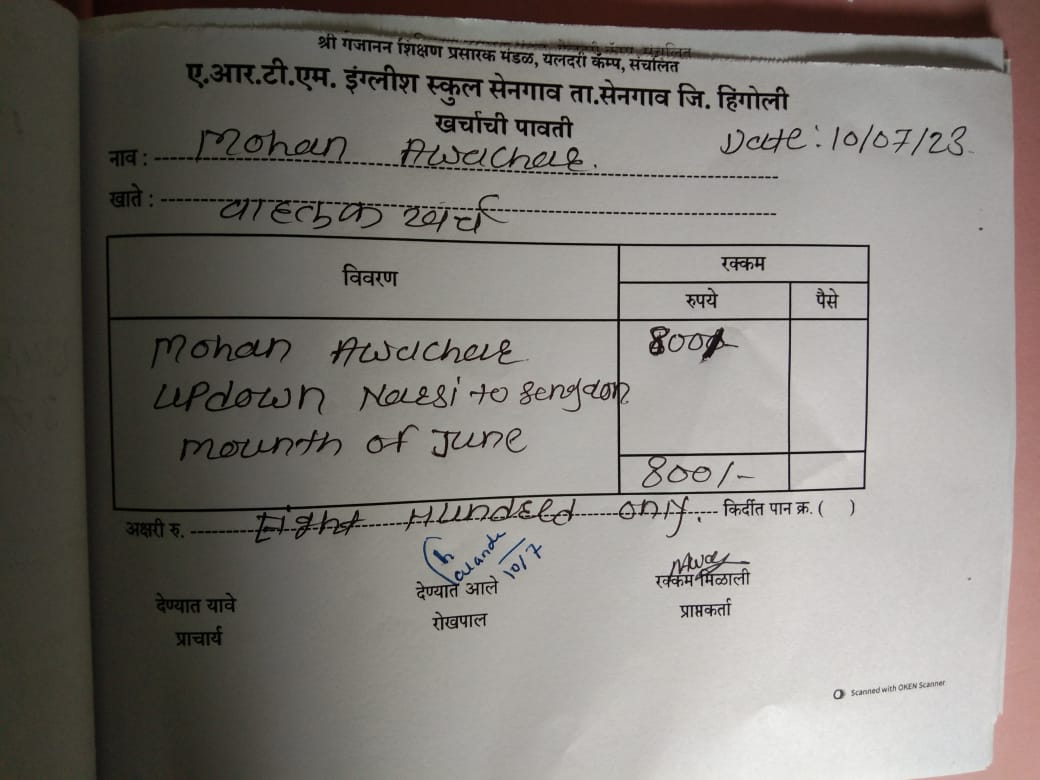 श्री गजानन शिक्षण प्रसारक मंडळ, यलदरी कॅम्प, संचलित
ए.आर.टी.एम. इंग्लीश स्कुल सेनगाव ता.सेनगाव जि. हिंगोली
खर्चाची पावती
Date: 10/07/23
नाव : Mohan Awachar.
खाते : वाहतुक खर्च
विवरण रक्कम
रुपये पैसे
Mohan Awachar 800/-
updown Narsi to Sengaon
mounth of June
800/-
अक्षरी रु. Eight Hundred only. किर्दीत पान क्र. ( )
10/7
देण्यात यावे देण्यात आले रक्कम मिळाली
प्राचार्य रोखपाल प्राप्तकर्ता
Scanned with OKEN Scanner